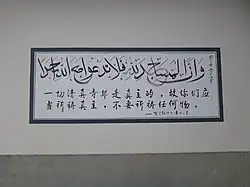 وأن المساجد لله فلا تدعوا مع الله أحدا
一切清真寺都是真主的，故你们应
当祈祷真主，不要祈祷任何物，